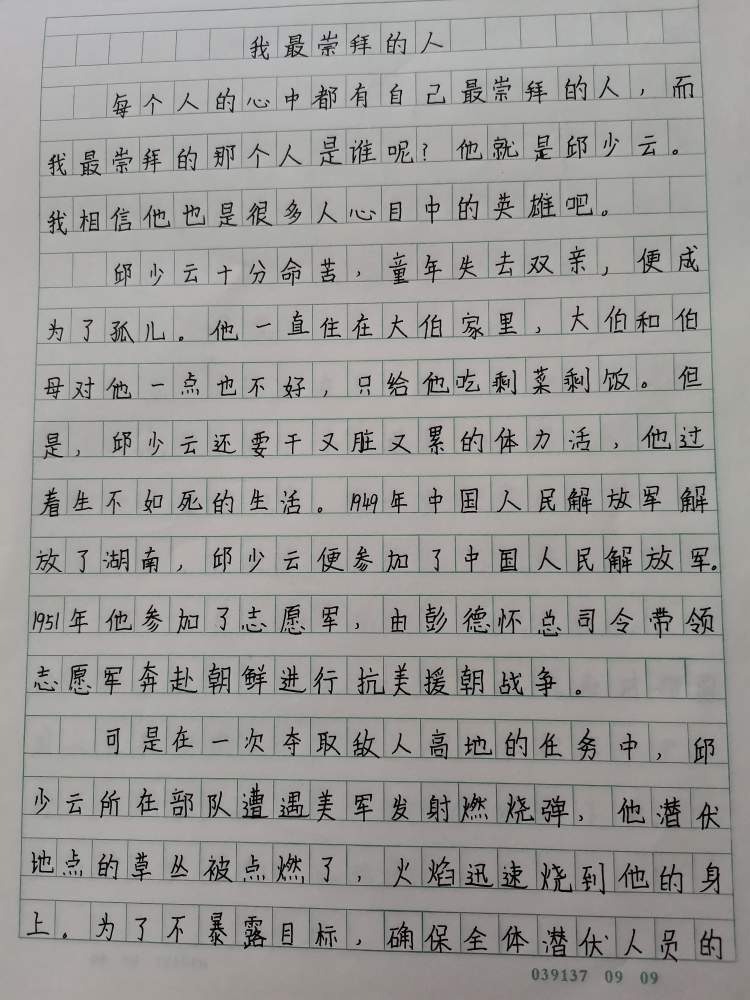 我最崇拜的人
每个人的心中都有自己最崇拜的人，而
我最崇拜的那个人是谁呢？他就是邱少云。
我相信他也是很多人心目中的英雄吧。
邱少云十分命苦，童年失去双亲，便成
为了孤儿。他一直住在大伯家里，大伯和伯
母对他一点也不好，只给他吃剩菜剩饭。但
是，邱少云还要干又脏又累的体力活，他过
着生不如死的生活。1949年中国人民解放军解
放了湖南，邱少云便参加了中国人民解放军。
1951年他参加了志愿军，由彭德怀总司令带领
志愿军奔赴朝鲜进行抗美援朝战争。
可是在一次夺取敌人高地的任务中，邱
少云所在部队遭遇美军发射燃烧弹，他潜伏
地点的草丛被点燃了，火焰迅速烧到他的身
上。为了不暴露目标，确保全体潜伏人员的
039137 09 09